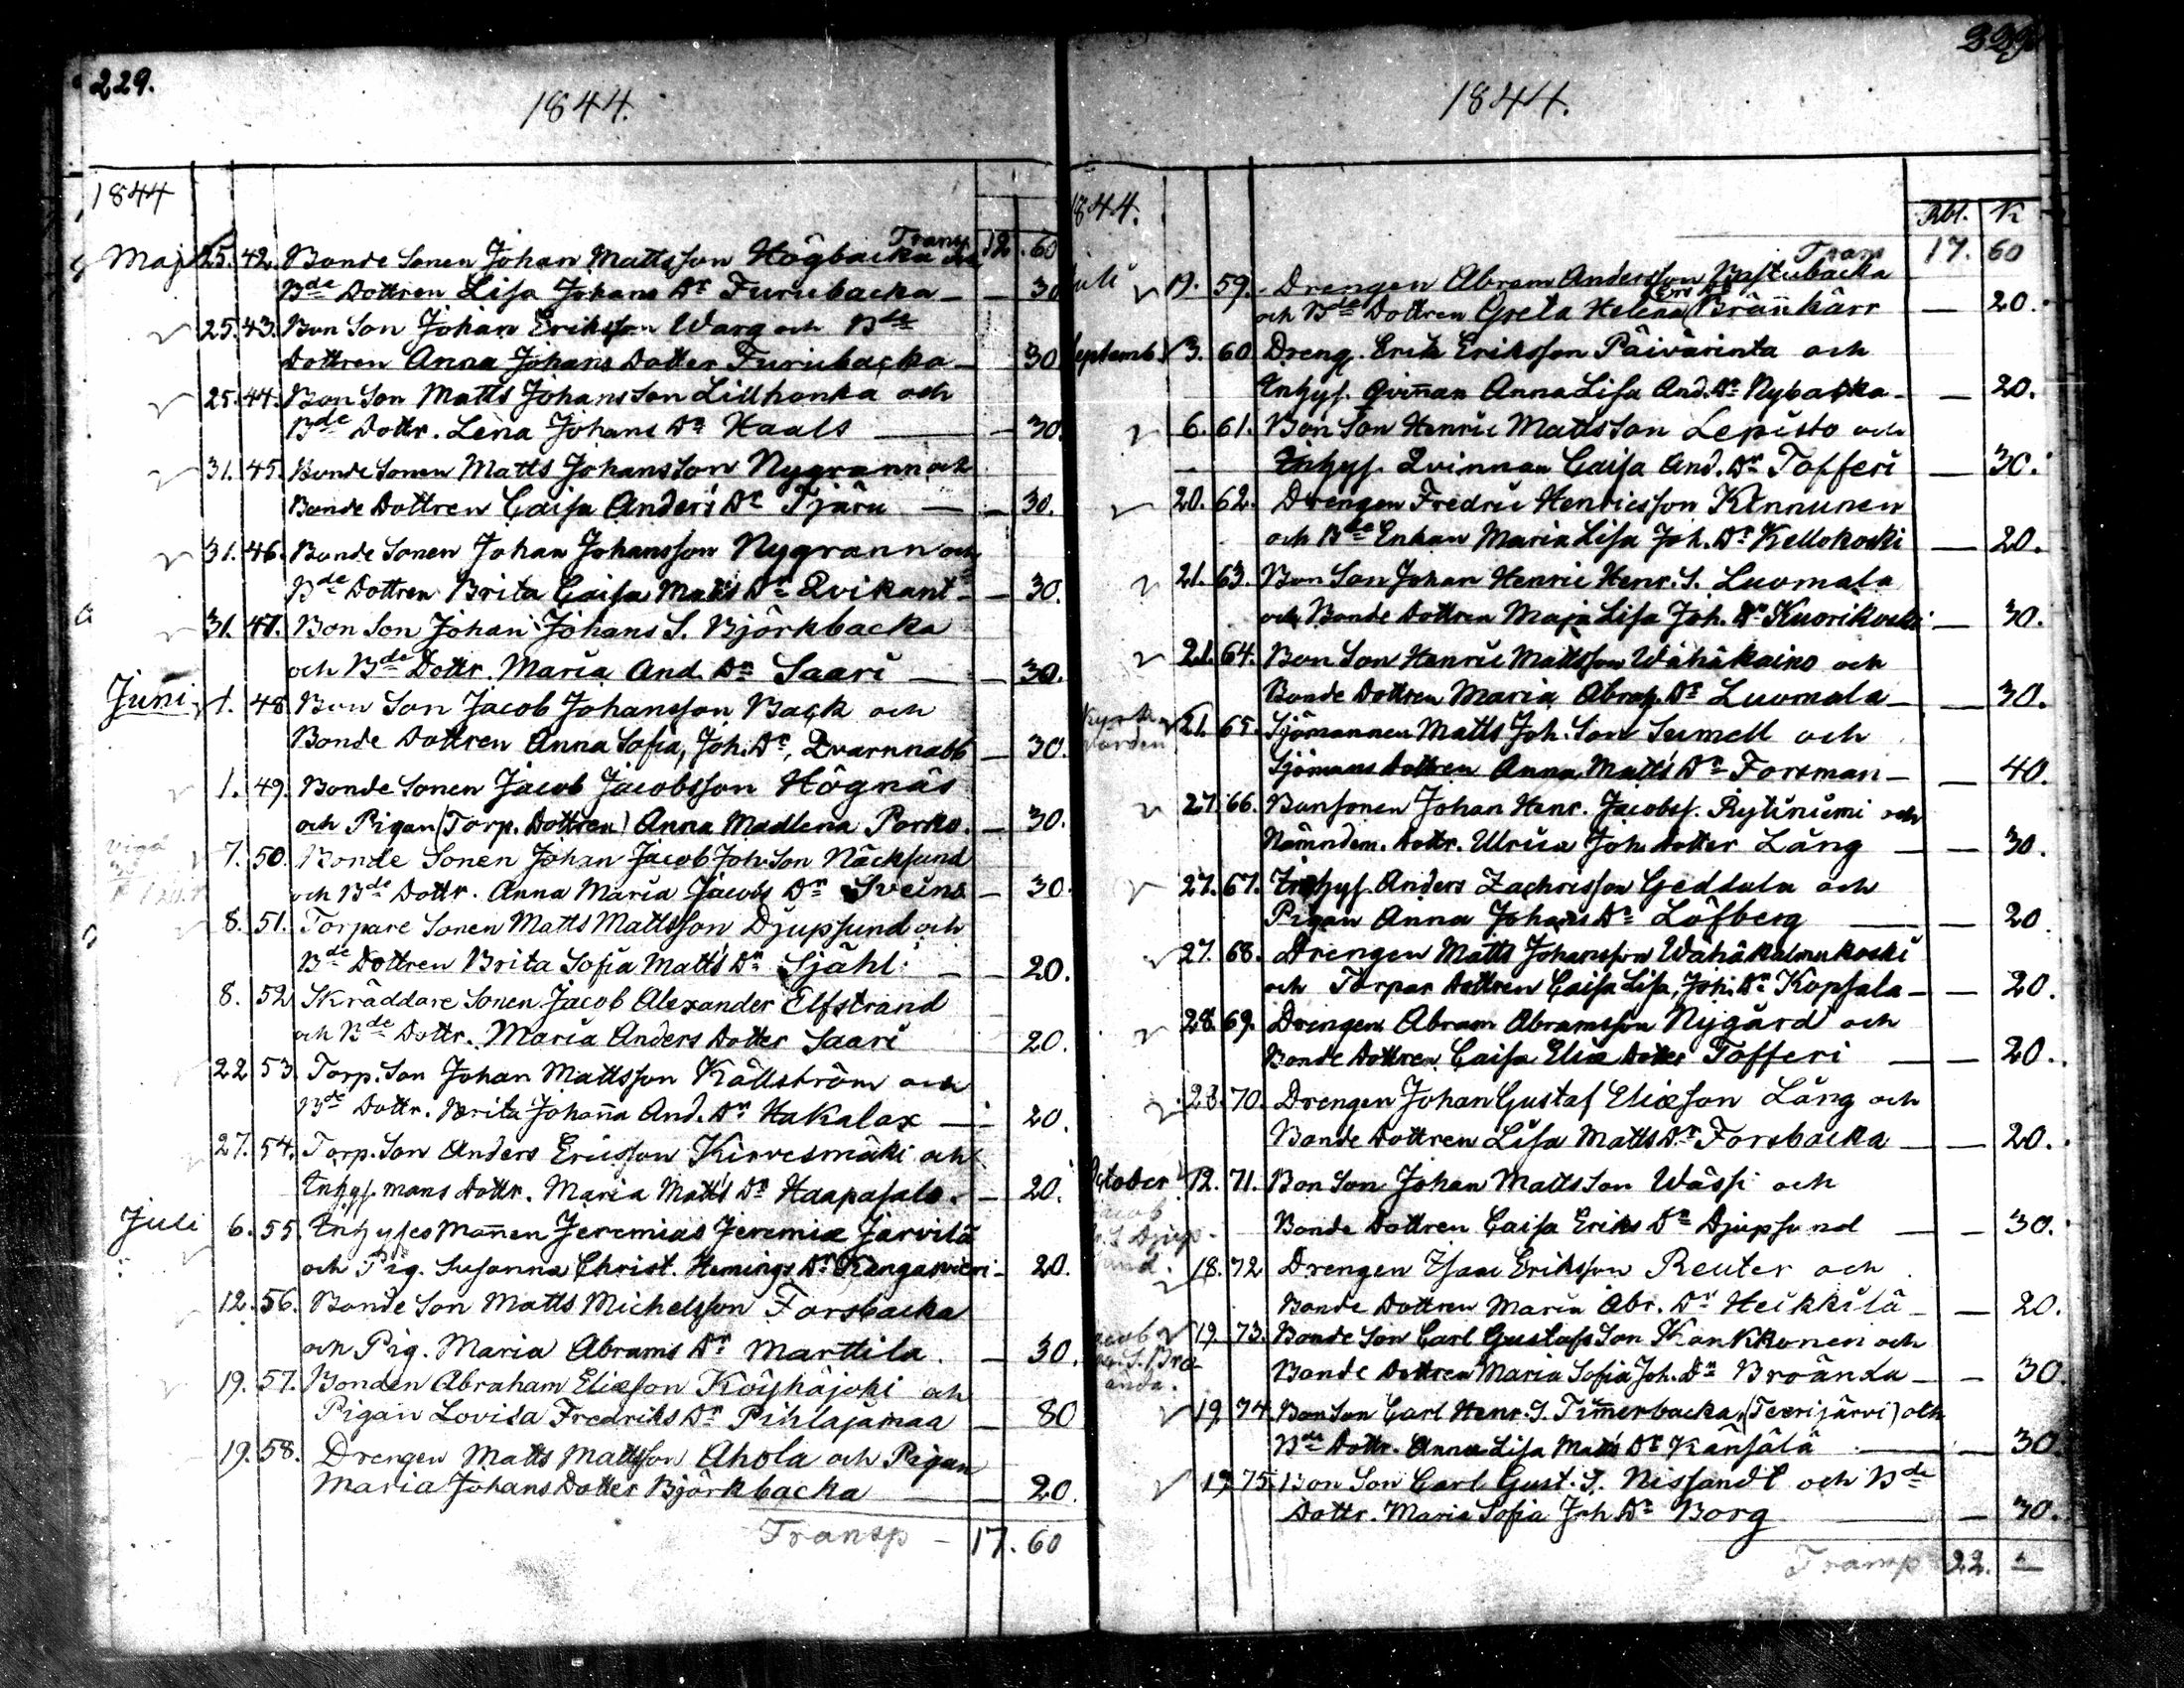 229.
1844.
1844
Transp. 12. 60
Maj 25. 42. Bonde Sonen Johan Mattsson Högbacka och
Bde Dottren Lisa Johans Dr Furubacka — — 30
25. 43. Bon Son Johan Eriksson Warg och Bde
Dottren Anna Johans Dotter Furubacka — 30
25. 44. Bon Son Matts Johansson Lillhonka och
Bde Dottr. Lena Johans Dr Haals — — 30.
31. 45. Bonde Sonen Matts Johansson Nygrann och
Bonde Dottren Caisa Anders Dr Tjäru — — 30.
31. 46. Bonde Sonen Johan Johansson Nygrann och
Bde Dottren Brita Caisa Matts Dr Qvikant — — 30.
31. 47. Bon Son Johan Johans S. Björkbacka
och Bde Dottr. Maria And. Dr Saari — — 30.
Juni 1. 48. Bon Son Jacob Johansson Back och
Bonde Dottren Anna Sofia, Joh. Dr, Qvarnnabb — 30.
1. 49. Bonde Sonen Jacob Jacobsson Högnäs
och Pigan (Torp. Dottren) Anna Madlena Porko. — 30.
7. 50. Bonde Sonen Johan Jacob Joh. Son Näcksund
och Bde Dottr. Anna Maria Jacobs Dr Sveins — 30.
8. 51. Torpare Sonen Matts Mattsson Djupsund och
Bde Dottren Brita Sofia Matts Dr Sjähl — — 20.
8. 52 Skräddare Sonen Jacob Alexander Elfstrand
och Bde Dottr. Maria Anders Dotter Saari 20.
22 53. Torp. Son Johan Mattsson Källström och
Bde Dottr. Brita Johanna And. Dr Hakalax — 20.
27. 54. Torp. Son Anders Ericsson Kirvesmäki och
Inhys. mans Dottr. Maria Matts Dr Haapasalo. — 20.
Juli 6. 55. Inhyses Mannen Jeremias Jeremiæ Jarvilä
och Pig. Susanna Christ. Hemings Dr Kangasvieri — 20.
12. 56. Bonde Son Matts Michelsson Forsbacka
och Pig. Maria Abrams Dr Marttila. — 30.
19. 57. Bonden Abraham Eliæson Köyhäjoki och
Pigan Lovisa Fredriks Dr Pihlajamaa — 80
19. 58. Drengen Matts Mattsson Ahola och Pigan
Maria Johans Dotter Björkbacka — — 20.
Transp — 17. 60
229
1844.
1844.
Rbl. K
Transp 17. 60
Juli 19. 59. Drengen Abram Andersson Bastubacka
och Bde Dottren Greta Helena Brännkärr — 20.
Septemb. 3. 60 Dreng. Erik Eriksson Päivärinta och
Inhys. Qvinnan Anna Lisa And. Dr Nybacka — — 20.
6. 61. Bon Son Henric Mattsson Lepistö och
Inhys. Qvinnan Caisa And. Dr Tofferi — 30.
20. 62. Drengen Fredric Henricsson Kinnunen
och Bde Enkan Maria Lisa Joh. Dr Kellokoski — 20.
21. 63. Bon Son Johan Henric Henr. S. Luomala
och Bonde Dottren Maja Lisa Joh. Dr Kuorikoski — 30.
21. 64. Bon Son Henric Mattsson Wähäkaino och
Bonde Dottren Maria Abrah. Dr Luomala — — 30.
21. 65. Sjömannen Matts Joh. Son Sumell och
Sjömans Dottren Anna Matts Dr Forsman — — 40.
27. 66. Bonsonen Johan Henr. Jacobss. Rytiniemi och
Nämndem. Dottr. Ulrica Joh. Dotter Lång — — 30.
27. 67. Inhys. Anders Zachrisson Geddala och
Pigan Anna Johans Dr Löfberg — — 20
27. 68. Drengen Matts Johansson Wähäkalmukoski
och Torpar Dottren Caisa Lisa, Joh. Dr Kopsala — — 20.
28. 69. Drengen Abram Abramsson Nygård och
Bonde Dottren Caisa Eliæ Dotter Tofferi — — 20.
28. 70. Drengen Johan Gustaf Eliæson Lång och
Bonde Dottren Lisa Matts Dr Forsbacka — — 20.
October 12. 71. Bon Son Johan Mattsson Wässi och
Bonde Dottren Caisa Eriks Dr Djupsund — — 30.
18. 72 Drengen Isaac Eriksson Reuter och
Bonde Dottren Maria Abr. Dr Heikkilä — — 20.
19. 73. Bonde Son Carl Gustafs Son Kankkonen och
Bonde Dottren Maria Sofia Joh. Dr Broända — — 30.
19. 74. Bon Son Carl Henr. S. Timmerbacka, (Teerijärvi) och
Bde Dottr. Anna Lisa Matts Dr Känsälä — — 30
19. 75. Bon Son Carl Gust. S. Nissandt och Bde
Dottr. Maria Sofia Joh Dr Borg — — 30.
Transp 22. —